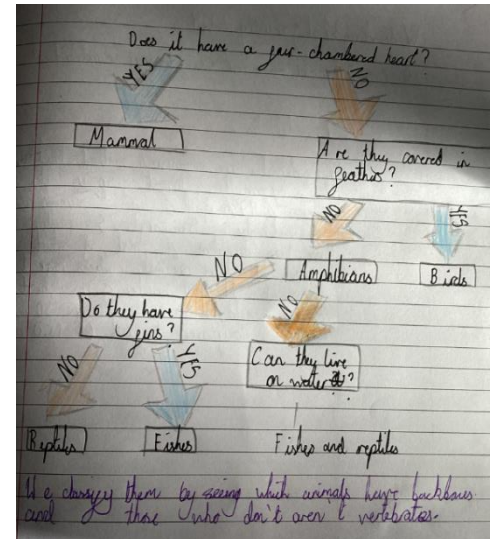 Does it have a four-chambered heart?
YES
NO
Mammal
Are they covered in
feathers?
NO
YES
Amphibians
Birds
NO
NO
Do they have
fins?
Can they live
on water?
NO
YES
Reptiles
Fishes
Fishes and reptiles
We classify them by seeing which animals have backbones
and those who don't aren't vertebrates.